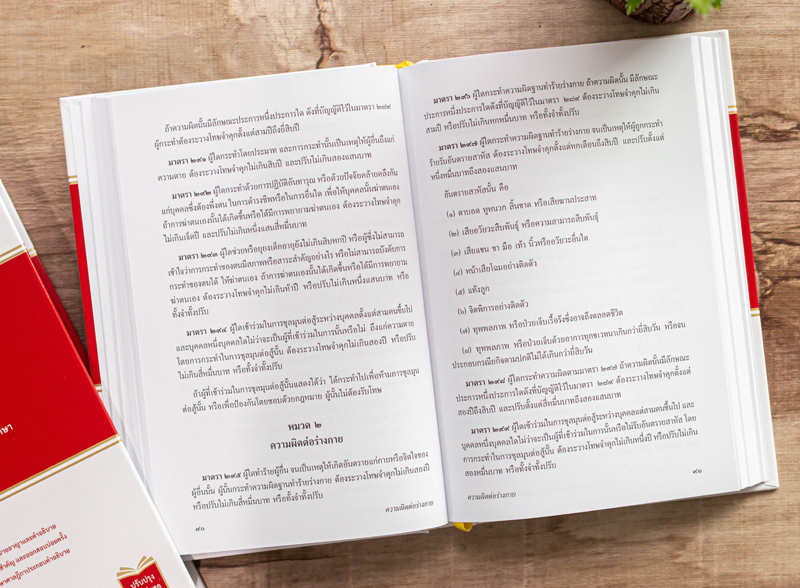 ถ้าความผิดนั้นมีลักษณะประการหนึ่งประการใด ดังที่บัญญัติไว้ในมาตรา ๒๘๙
ผู้กระทำต้องระวางโทษจำคุกตั้งแต่สามปีถึงยี่สิบปี
มาตรา ๒๙๑ ผู้ใดกระทำโดยประมาท และการกระทำนั้นเป็นเหตุให้ผู้อื่นถึงแก่
ความตาย ต้องระวางโทษจำคุกไม่เกินสิบปี และปรับไม่เกินสองแสนบาท
มาตรา ๒๙๒ ผู้ใดกระทำด้วยการปฏิบัติอันทารุณ หรือด้วยปัจจัยคล้ายคลึงกัน
แก่บุคคลซึ่งต้องพึ่งตน ในการดำรงชีพหรือในการอื่นใด เพื่อให้บุคคลนั้นฆ่าตนเอง
ถ้าการฆ่าตนเองนั้นได้เกิดขึ้นหรือได้มีการพยายามฆ่าตนเอง ต้องระวางโทษจำคุก
ไม่เกินเจ็ดปี และปรับไม่เกินหนึ่งแสนสี่หมื่นบาท
มาตรา ๒๙๓ ผู้ใดช่วยหรือยุยงเด็กอายุยังไม่เกินสิบหกปี หรือผู้ซึ่งไม่สามารถ
เข้าใจว่าการกระทำของตนมีสภาพหรือสาระสำคัญอย่างไร หรือไม่สามารถบังคับการ
กระทำของตนได้ ให้ฆ่าตนเอง ถ้าการฆ่าตนเองนั้นได้เกิดขึ้นหรือได้มีการพยายาม
ฆ่าตนเอง ต้องระวางโทษจำคุกไม่เกินห้าปี หรือปรับไม่เกินหนึ่งแสนบาท หรือ
ทั้งจำทั้งปรับ
มาตรา ๒๙๔ ผู้ใดเข้าร่วมในการชุลมุนต่อสู้ระหว่างบุคคลตั้งแต่สามคนขึ้นไป
และบุคคลหนึ่งบุคคลใดไม่ว่าจะเป็นผู้ที่เข้าร่วมในการนั้นหรือไม่ ถึงแก่ความตาย
โดยการกระทำในการชุลมุนต่อสู้นั้น ต้องระวางโทษจำคุกไม่เกินสองปี หรือปรับ
ไม่เกินสี่หมื่นบาท หรือทั้งจำทั้งปรับ
ถ้าผู้ที่เข้าร่วมในการชุลมุนต่อสู้นั้นแสดงได้ว่า ได้กระทำไปเพื่อห้ามการชุลมุน
ต่อสู้นั้น หรือเพื่อป้องกันโดยชอบด้วยกฎหมาย ผู้นั้นไม่ต้องรับโทษ
หมวด ๒
ความผิดต่อร่างกาย
มาตรา ๒๙๕ ผู้ใดทำร้ายผู้อื่น จนเป็นเหตุให้เกิดอันตรายแก่กายหรือจิตใจของ
ผู้อื่นนั้น ผู้นั้นกระทำความผิดฐานทำร้ายร่างกาย ต้องระวางโทษจำคุกไม่เกินสองปี
หรือปรับไม่เกินสี่หมื่นบาท หรือทั้งจำทั้งปรับ
ความผิดต่อร่างกาย
๙๐
มาตรา ๒๙๖ ผู้ใดกระทำความผิดฐานทำร้ายร่างกาย ถ้าความผิดนั้น มีลักษณะ
ประการหนึ่งประการใดดังที่บัญญัติไว้ในมาตรา ๒๘๙ ต้องระวางโทษจำคุกไม่เกิน
สามปี หรือปรับไม่เกินหกหมื่นบาท หรือทั้งจำทั้งปรับ
มาตรา ๒๙๗ ผู้ใดกระทำความผิดฐานทำร้ายร่างกาย จนเป็นเหตุให้ผู้ถูกกระทำ
ร้ายรับอันตรายสาหัส ต้องระวางโทษจำคุกตั้งแต่หกเดือนถึงสิบปี และปรับตั้งแต่
หนึ่งหมื่นบาทถึงสองแสนบาท
อันตรายสาหัสนั้น คือ
(๑) ตาบอด หูหนวก ลิ้นขาด หรือเสียฆานประสาท
(๒) เสียอวัยวะสืบพันธุ์ หรือความสามารถสืบพันธุ์
(๓) เสียแขน ขา มือ เท้า นิ้วหรืออวัยวะอื่นใด
(๔) หน้าเสียโฉมอย่างติดตัว
(๕) แท้งลูก
(๖) จิตพิการอย่างติดตัว
(๗) ทุพพลภาพ หรือป่วยเจ็บเรื้อรังซึ่งอาจถึงตลอดชีวิต
(๘) ทุพพลภาพ หรือป่วยเจ็บด้วยอาการทุกขเวทนาเกินกว่ายี่สิบวัน หรือจน
ประกอบกรณียกิจตามปกติไม่ได้เกินกว่ายี่สิบวัน
มาตรา ๒๙๘ ผู้ใดกระทำความผิดตามมาตรา ๒๙๗ ถ้าความผิดนั้นมีลักษณะ
ประการหนึ่งประการใดดังที่บัญญัติไว้ในมาตรา ๒๘๙ ต้องระวางโทษจำคุกตั้งแต่
สองปีถึงสิบปี และปรับตั้งแต่สี่หมื่นบาทถึงสองแสนบาท
มาตรา ๒๙๙ ผู้ใดเข้าร่วมในการชุลมุนต่อสู้ระหว่างบุคคลตั้งแต่สามคนขึ้นไป และ
บุคคลหนึ่งบุคคลใดไม่ว่าจะเป็นผู้ที่เข้าร่วมในการนั้นหรือไม่รับอันตรายสาหัส โดย
การกระทำในการชุลมุนต่อสู้นั้น ต้องระวางโทษจำคุกไม่เกินหนึ่งปี หรือปรับไม่เกิน
สองหมื่นบาท หรือทั้งจำทั้งปรับ
ความผิดต่อร่างกาย
๙๑
ปรับปรุง